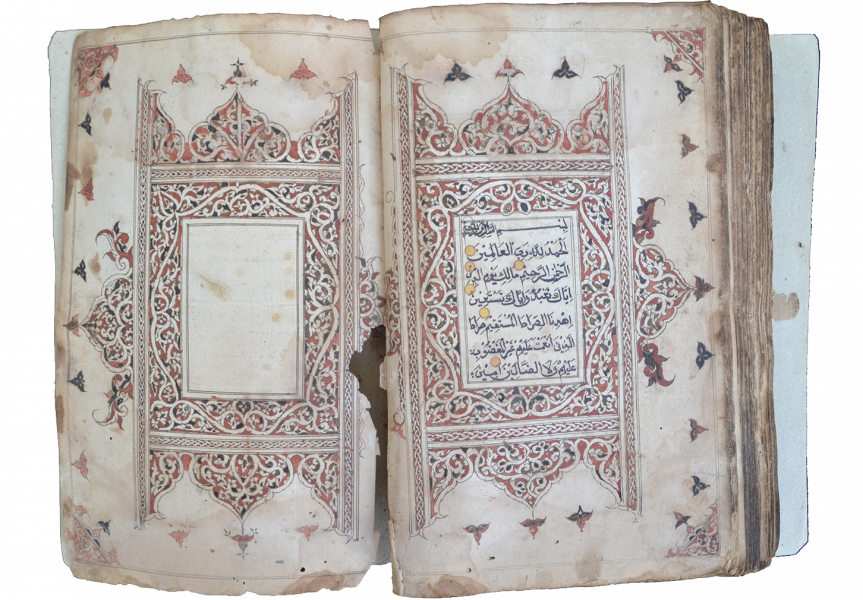 بِسْمِ
اَلْحَمْدُ لِلّٰهِ رَبِّ الْعَالَمِيْنَ
الرَّحْمٰنِ الرَّحِيْمِ مَالِكِ يَوْمِ الدِّيْنِ
اِيَّاكَ نَعْبُدُ وَاِيَّاكَ نَسْتَعِيْنُ
اِهْدِنَا الصِّرَاطَ الْمُسْتَقِيْمَ صِرَاطَ
الَّذِيْنَ اَنْعَمْتَ عَلَيْهِمْ غَيْرِ الْمَغْضُوْبِ
عَلَيْهِمْ وَلَا الضَّالِّيْنَ اٰمِيْنَ